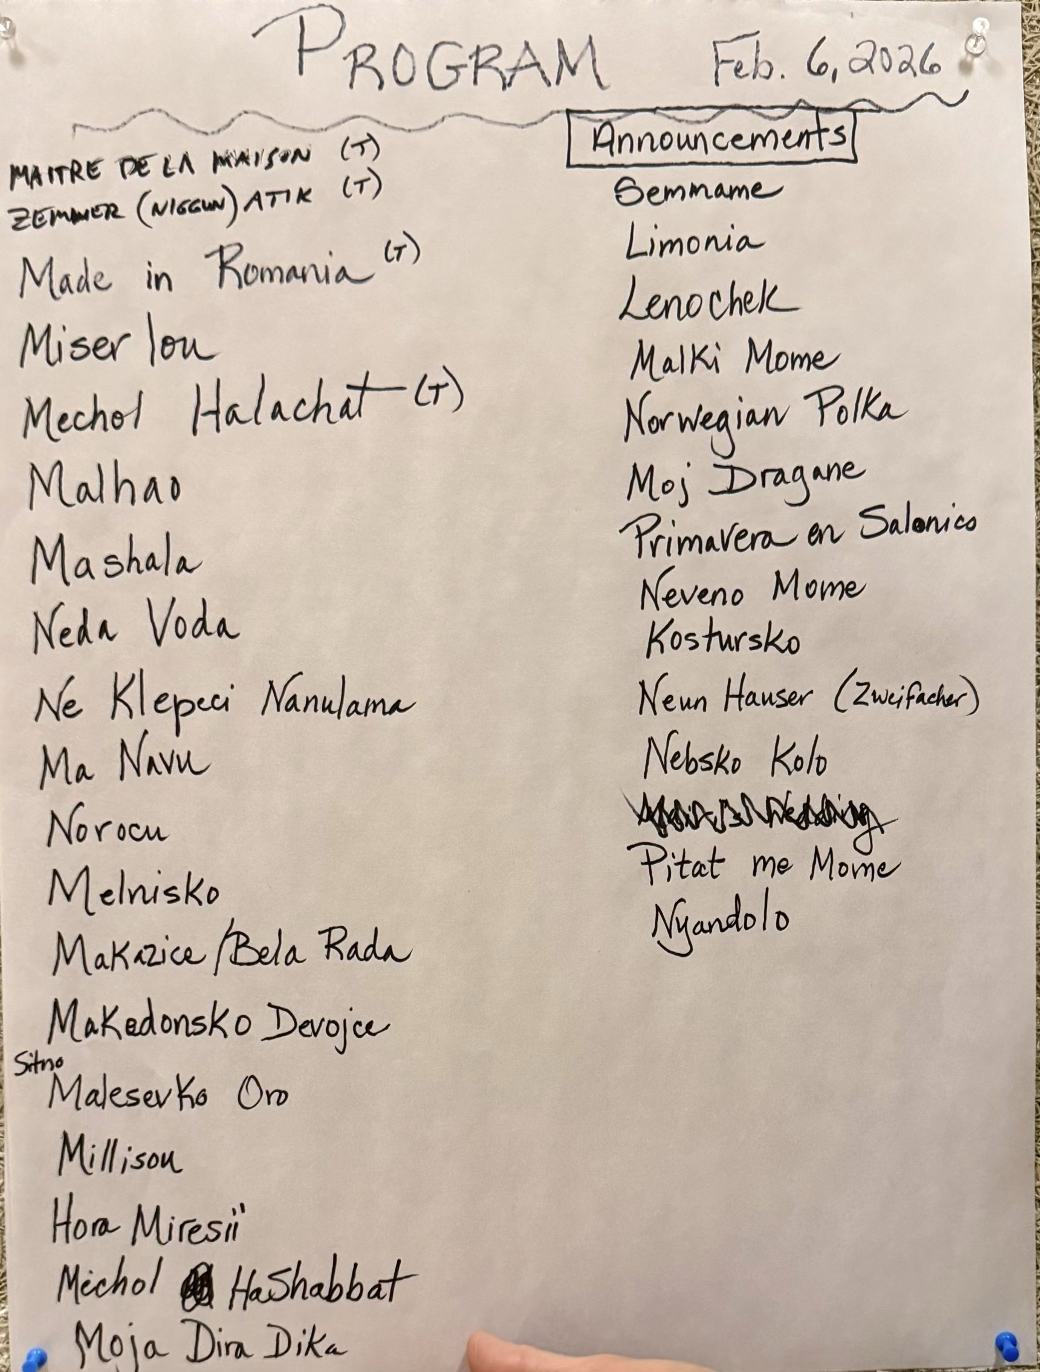 PROGRAM Feb. 6, 2026
MAITRE DE LA MAISON (T)
ZEMMER (NIGGUN) ATIK (T)
Made in Romania (T)
Miserlou
Mechol Halachat (T)
Malhao
Mashala
Neda Voda
Ne Klepeci Nanulama
Ma Navu
Norocu
Melnisko
Makazice/Bela Rada
Makedonsko Devojce
Sitno
Malesevko Oro
Millisou
Hora Miresii
Mechol HaShabbat
Moja Dira Dika
Announcements
Semmame
Limonia
Lenochek
Malki Mome
Norwegian Polka
Moj Dragane
Primavera en Salonico
Neveno Mome
Kostursko
Neun Hauser (Zweifacher)
Nebsko Kolo
Wedding
Pitat me Mome
Nyandolo